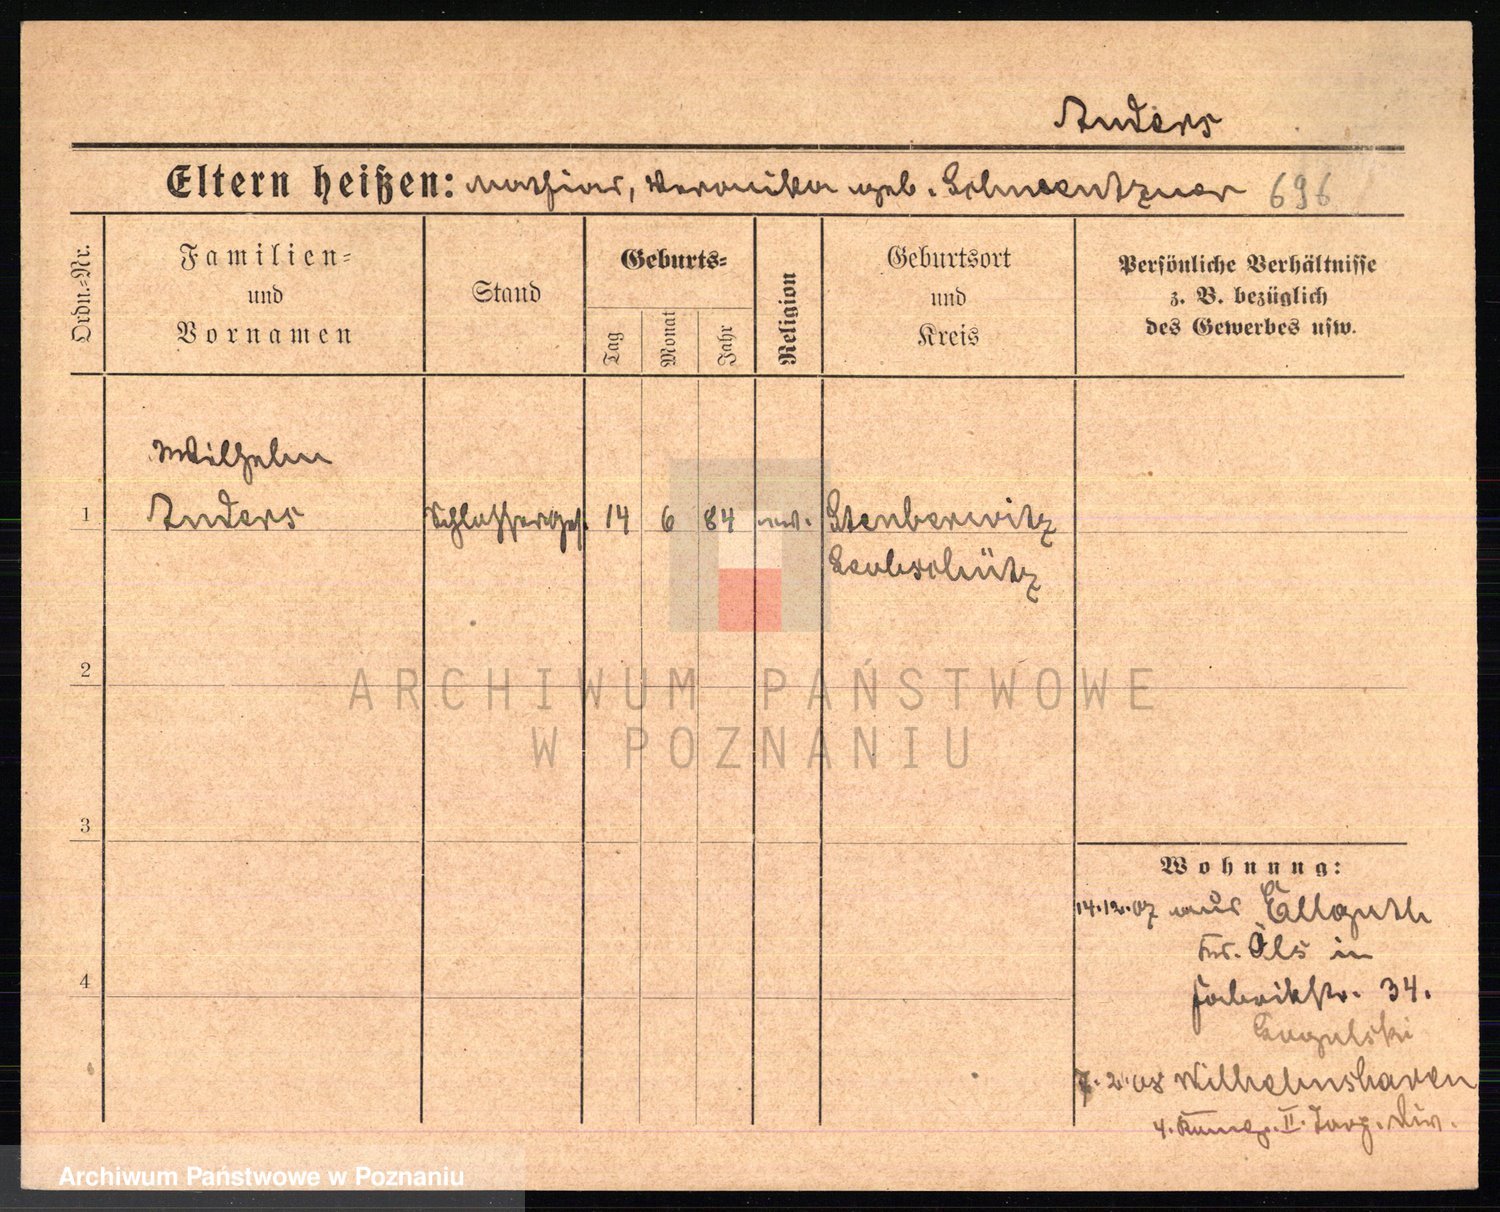 Anders
Eltern heißen: Mathias, Veronika geb. 696
Ordn.-Nr.
Familien- und Vornamen
Stand
Geburts-
Tag
Monat
Jahr
Religion
Geburtsort und Kreis
Persönliche Verhältnisse
z. B. bezüglich
des Gewerbes usw.
Wilhelm
1 Anders Schlosserges. 14 6 84
Leobschütz
2
ARCHIWUM PAŃSTWOWE
W POZNANIU
3
Wohnung:
14.12.07 aus Ellguth
Krs. Öls in
Fabrikstr. 34.
4
7.2.08 Wilhelmshaven
4. Komp. II. Torp. Div.
Archiwum Państwowe w Poznaniu